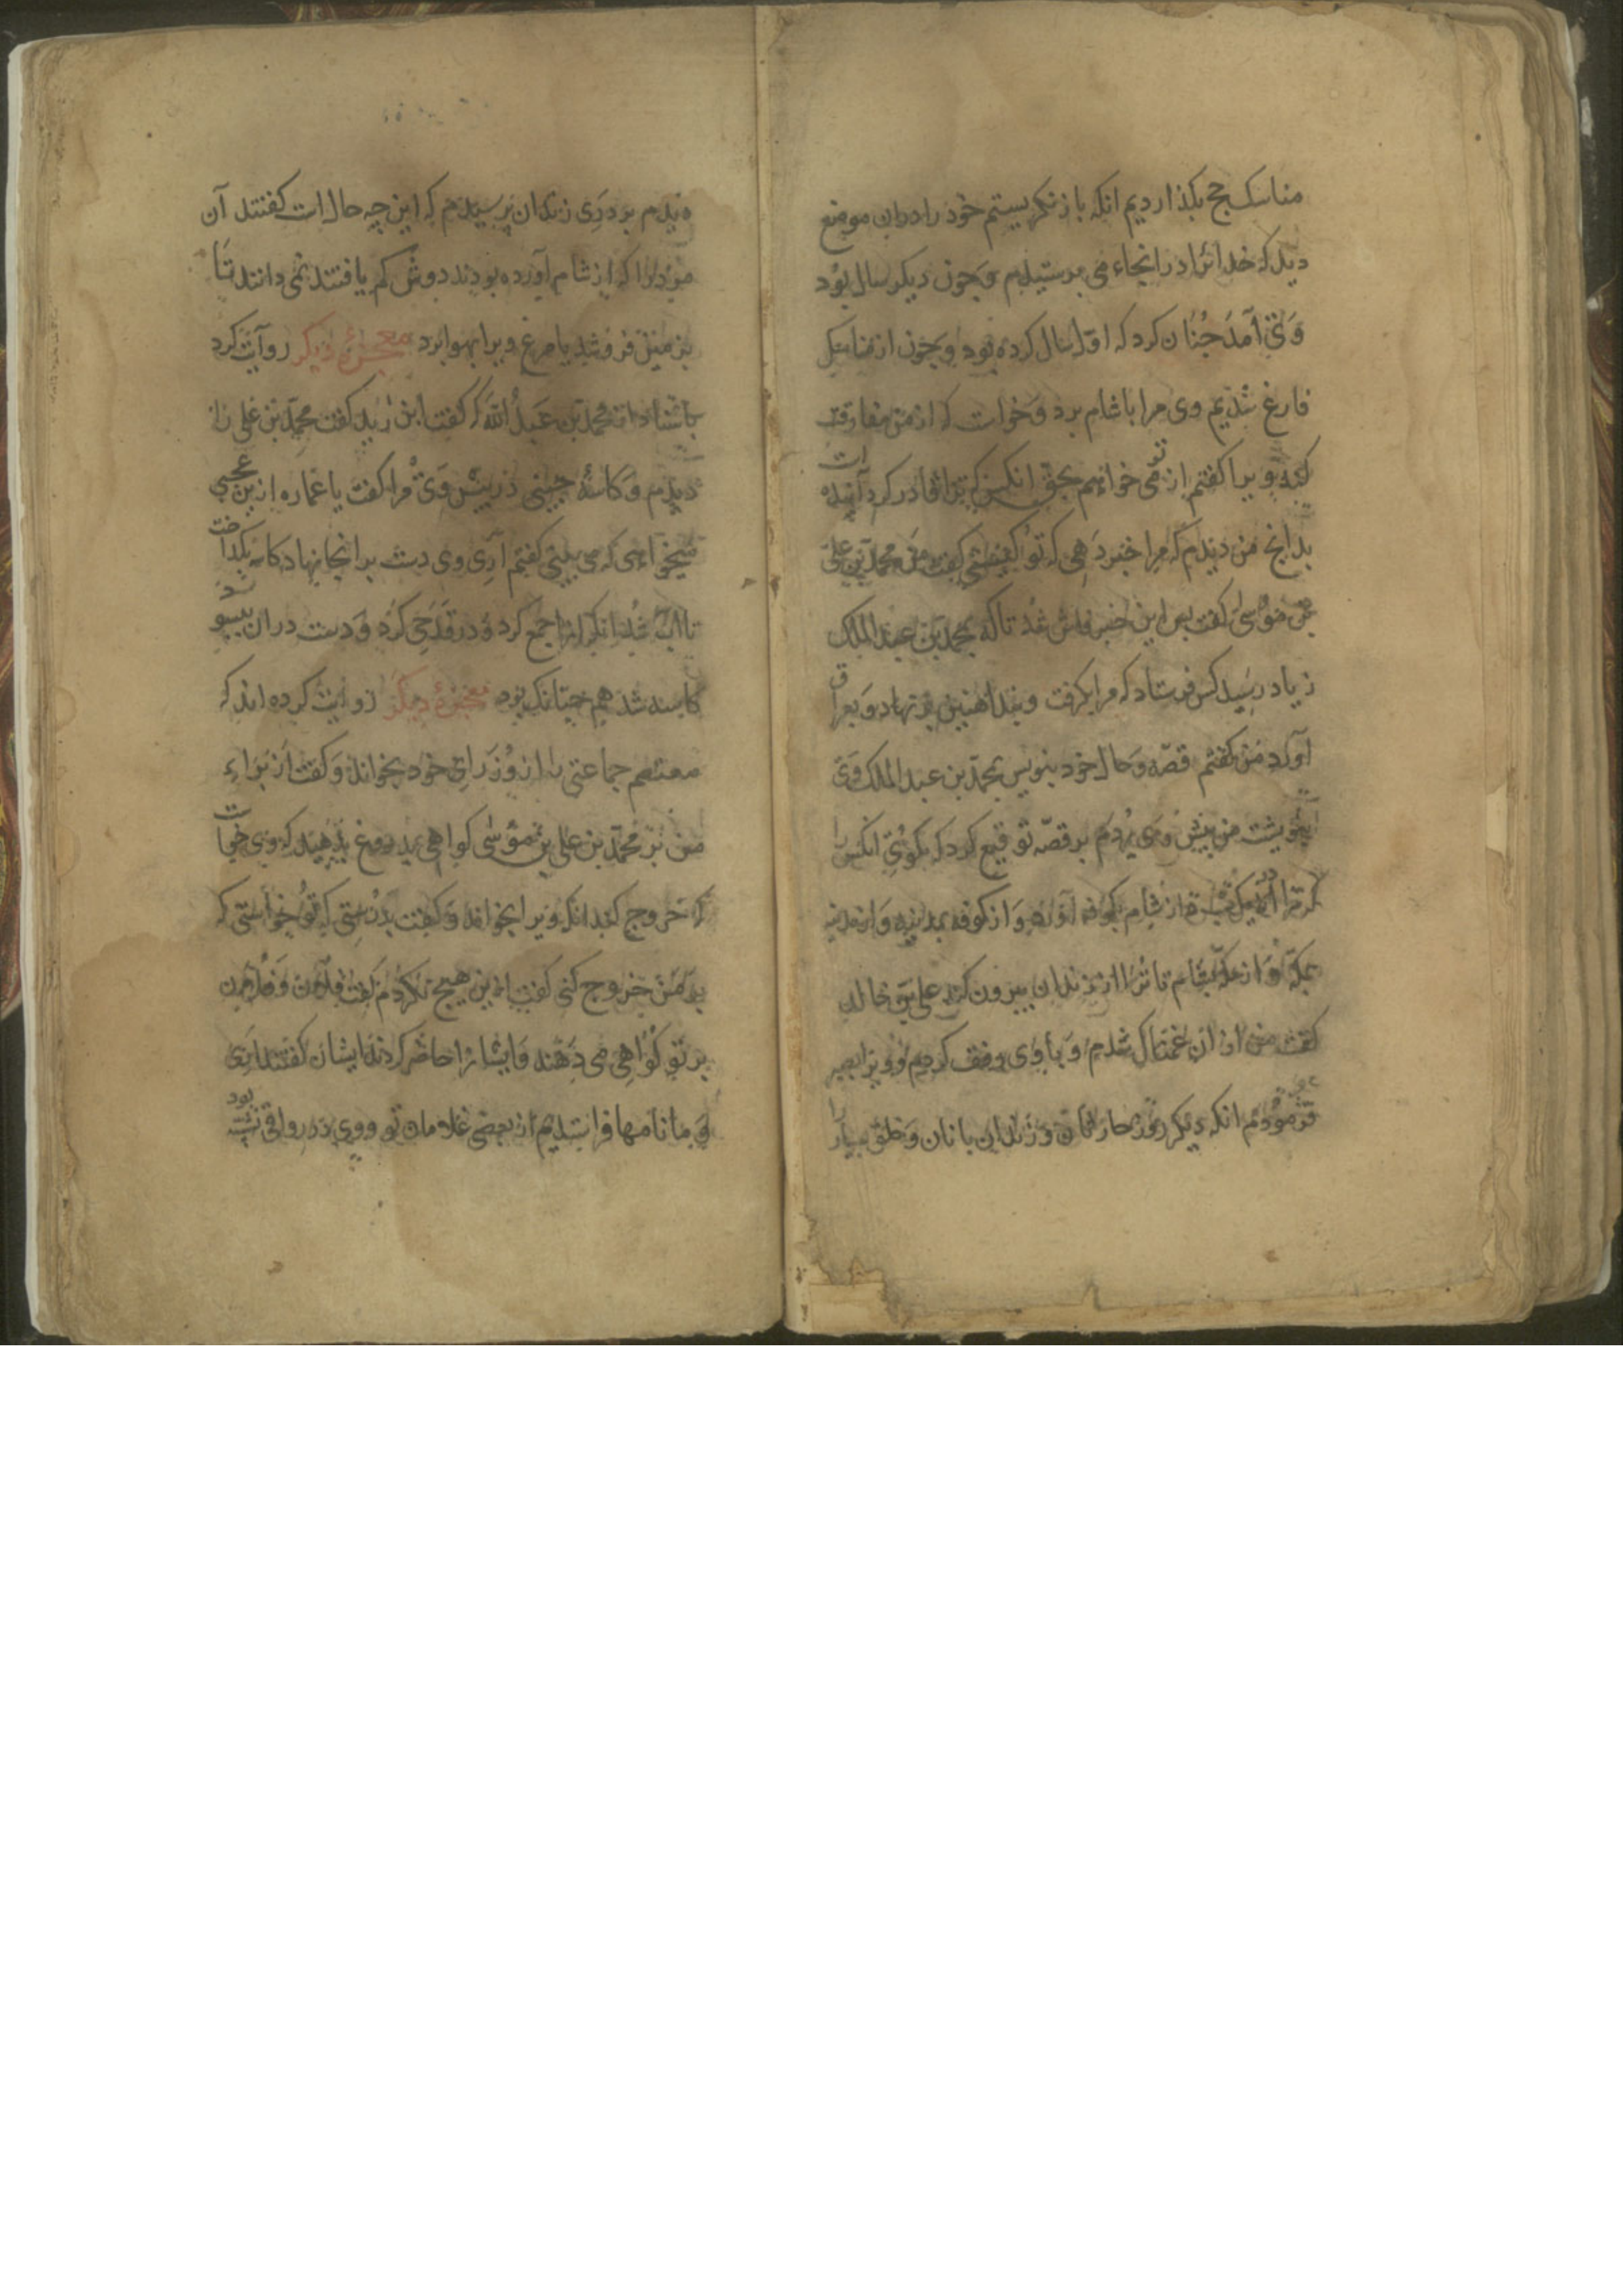 مناسک حج بکذاردیم انکه باز نکریستم خود را دران موضع
دیدم که خدایرا در انجاء می پرستیدم و چون دیکر سال بود
وی آمد چنان کرد که اول سال کرده بود و چون از مناسک
فارغ شدیم وی مرا باشام برد و خواست که از من مفارقت
کند ویرا کفتم از تو می خواهم بحق انکس که ترا قادر کرد
بدانچ من دیدم که مرا خبر دهی که تو کیستی کفت من محمد بن علی
بن موسی کفت پس این خبر فاش شد تا که بمحمد بن عبد الملک
زیاد رسید کس فرستاد که مرا بکرفت و بند اهنین بر نهاد و بعراق
آورد من کفتم قصه و حال خود بنویس بمحمد بن عبد الملک وی
بنوشت من پیش وی بردم بر قصه توقیع کرد که بکوی انکس را
که ترا در یک شب از شام بکوفه آورد و از کوفه بمدینه و از مدینه
بمکه و از مکه بشام تا ترا از زندان بیرون کند علی بن خالد
کفت من از ان غمناک شدم و با وی رفق کردم و ویرا بصبر
فرمودم انکه دیکر روز حارسان و زندان بانان و خلق بسیار را
دیدم بر در زندان پرسیدم که این چه حال است کفتند آن
مرد را که از شام آورده بودند دوش کم یافتند نمی دانند تا
بزمین فرو شد یا مرغ ویرا بهوا برد معجزۀ دیکر روآیت کرد
باسناد از محمد بن عبد الله که کفت ابن زید کفت محمد بن علی را
دیدم و کاسۀ چینی در پیش وی مرا کفت یا عماره ازین عجبی
میخواهی که می بینی کفتم آری وی دست بر انجا نهاد کاسه بکداخت
تا آب شد انکه انرا جمع کرد و در قدحی کرد و دست دران بیسود
کاسه شد هم چنانک بود معجزۀ دیکر روایت کرده اند که
معتصم جماعتی را از وزرای خود بخواند و کفت از براء
من بر محمد بن علی بن موسی کواهی بدروغ بدهید که وی خواست
که خروج کند انکه ویرا بخواند و کفت بدرستی که تو خواستی که
بر من خروج کنی کفت ازین هیچ نکردم کفت فلان و فلان
بر تو کواهی می دهند و ایشانرا حاضر کردند ایشان کفتند اری
و ما نامها فراستدیم از بعضی غلامان تو و وی در رواقی نشسته بود